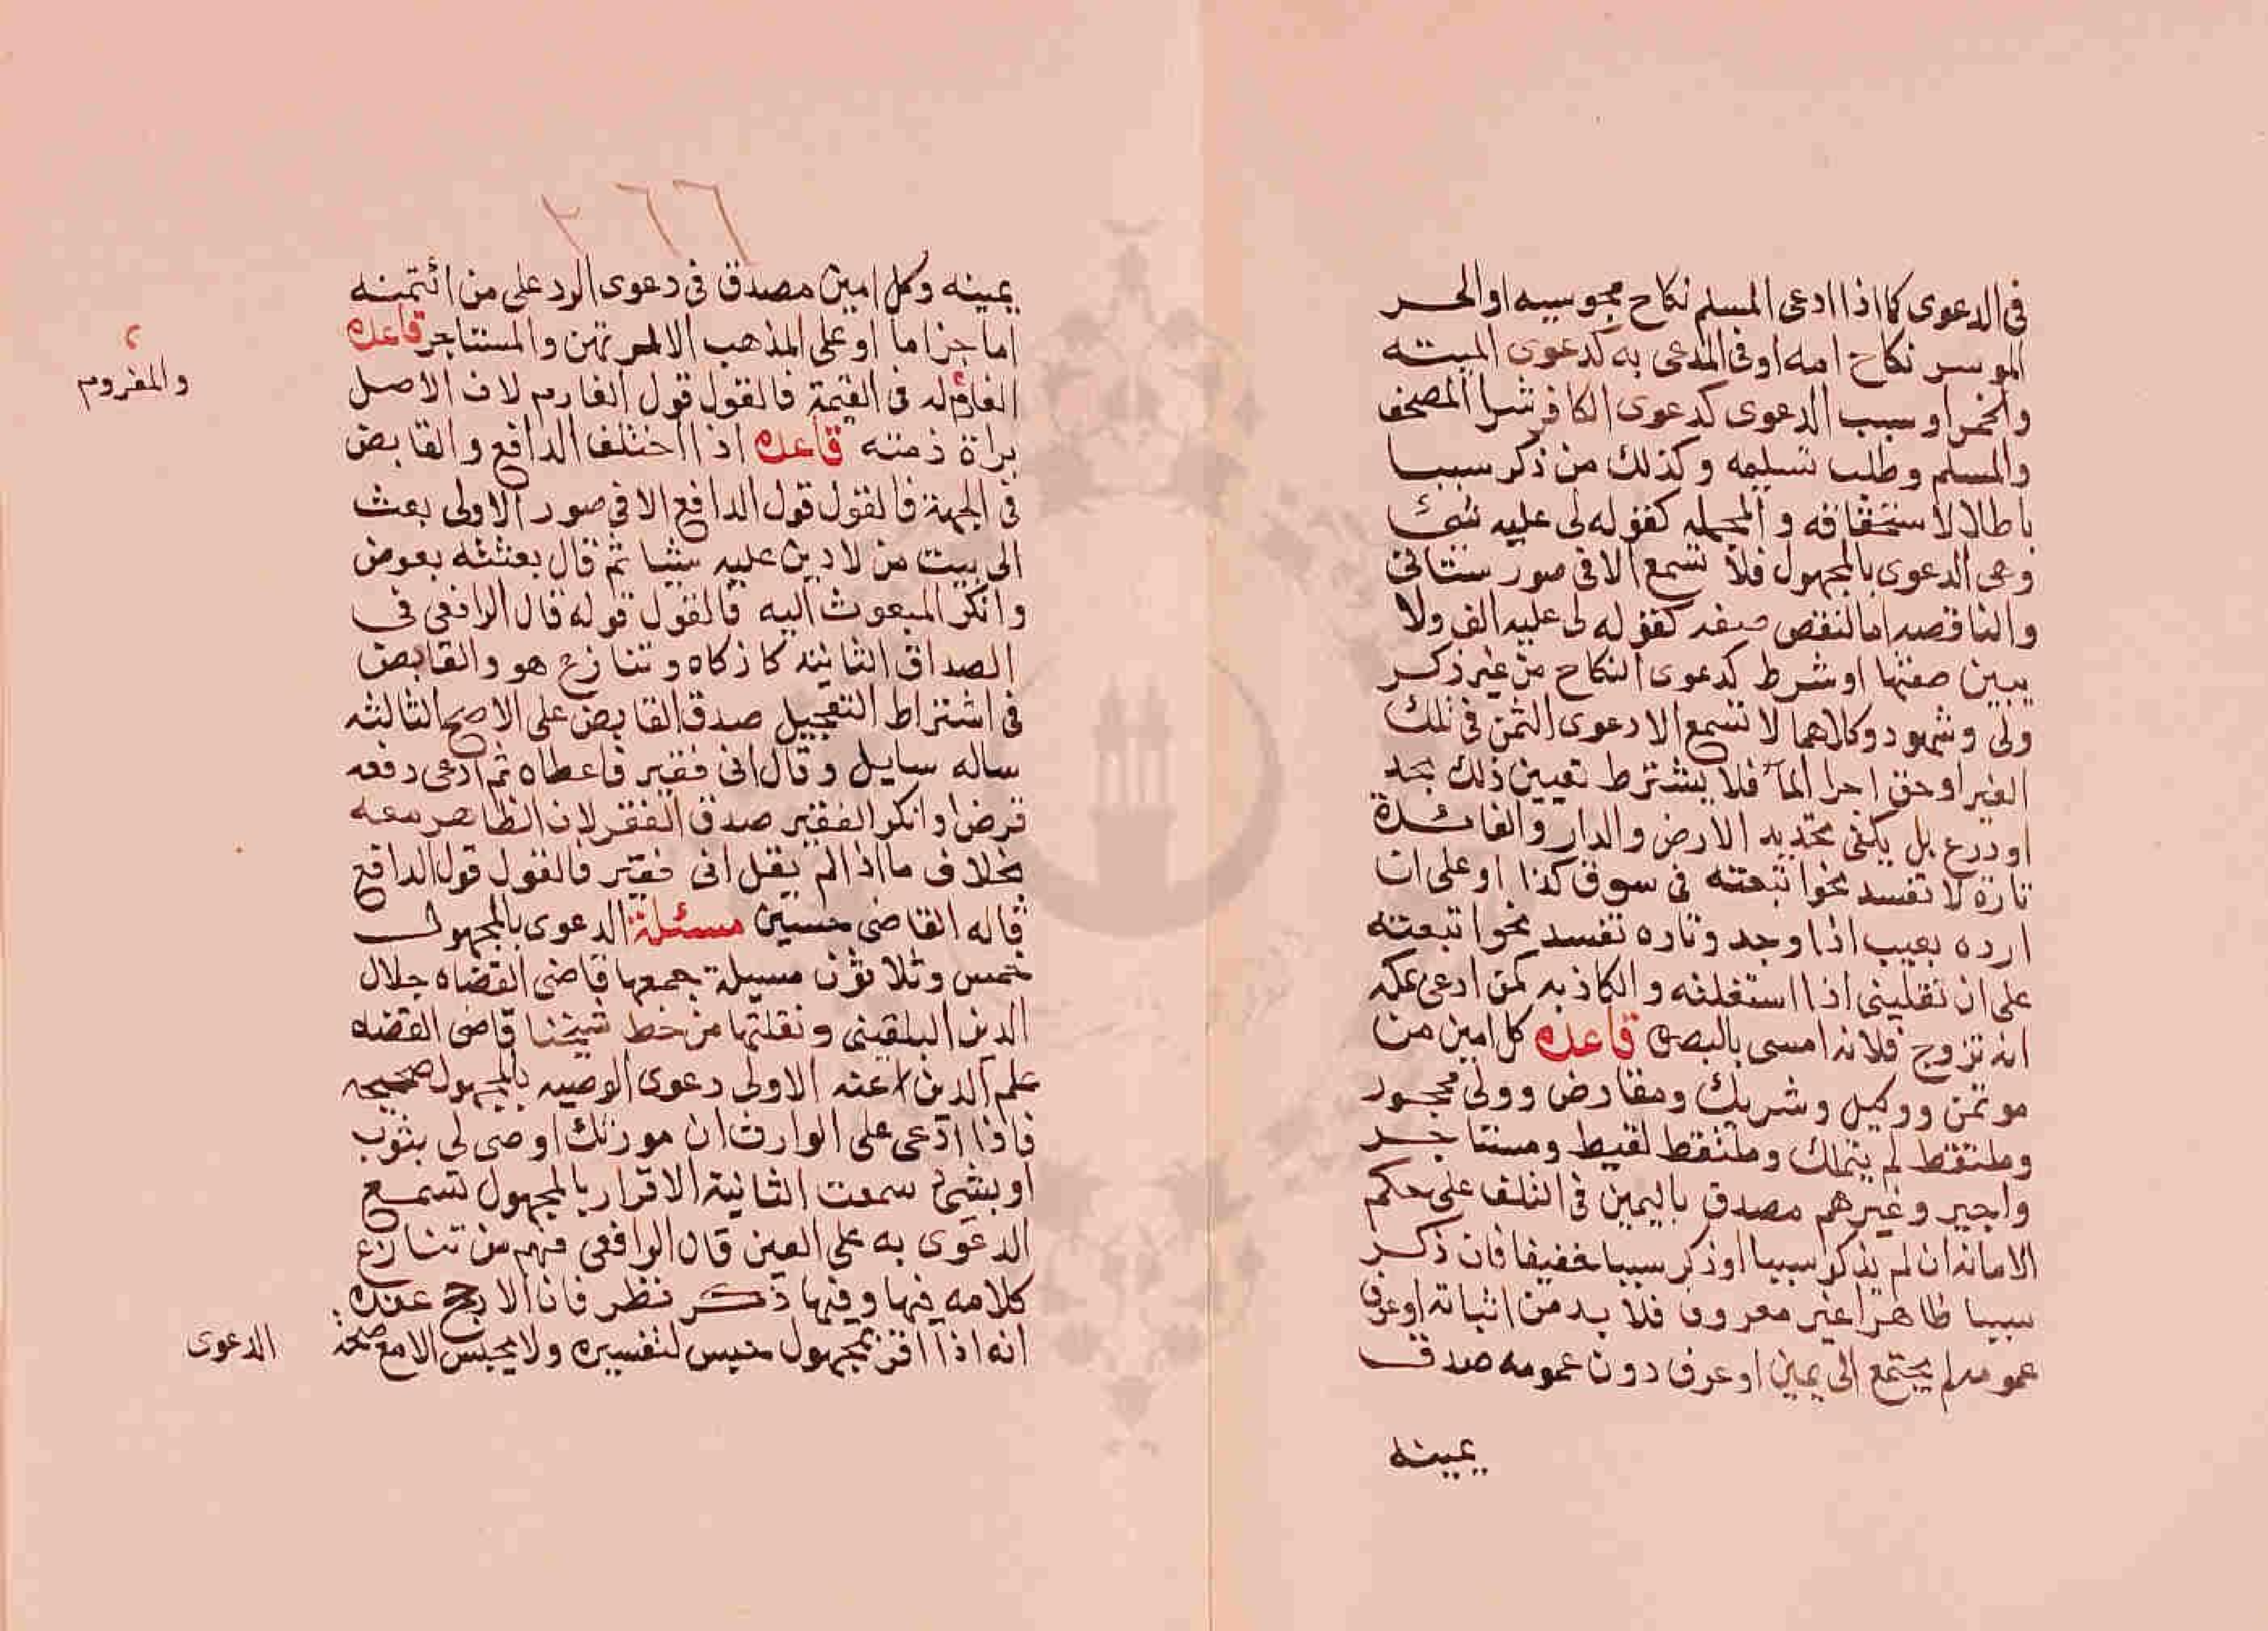 في الدعوى كما اذا ادعى المسلم نكاح مجوسيه او الحر
الموسر نكاح امه او في المدعى به كدعوى الميته
والخمر او سبب الدعوى كدعوى الكافر شرا المصحف
والمسلم وطلب تسليمه وكذلك من ذكر سببا
باطلا لاستحقاقه والمجمله كقوله لى عليه شئ
وهى الدعوى بالمجهول فلا تسمع الا في صور ستاتى
والناقصه اما لنقص صفه كقوله لى عليه الف ولا
يبين صفتها او شرط كدعوى النكاح من غير ذكر
ولى وشهود وكلاهما لا تسمع الا دعوى الثمن في تلك
الغير او حق اجرا الما فلا يشترط تعيين ذلك بحد
او درع بل يكفى تحديد الارض والدار والفائدة
تارة لا تفسد نحو ابتعته في سوق كذا او على ان
ارده بعيب اذا وجد وتاره تفسد نحو ابتعته
على ان تقليني اذا استقلته والكاذبه كمن ادعى بمكه
انه تزوج فلانه امسى بالبصره قاعده كل امين من
موتمن ووكيل وشريك ومقارض وولى محجور
وملتقط لم يتملك وملتقط لقيط ومستاجر
واجير وغيرهم مصدق باليمين في التلف على حكم
الامانه ان لم يذكر سببا او ذكر سببا خفيفا فان ذكر
سببا ظاهرا غير معروف فلا بد من اثباته او عرف
عمومه لم يحتج الى يمين او عرف دون عمومه صدق
يمينه
٢٦٦
يمينه وكل امين مصدق في دعوى الرد على من ائتمنه
اما جزاما او على المذهب الا المرتهن والمستاجر قاعده
الغارم له في القيمة فالقول قول الغارم لان الاصل
والمغروم
براة ذمته قاعده اذا اختلف الدافع والقابض
في الجهة فالقول قول الدافع الا في صور الاولى بعث
الى بيت من لا دين عليه شيا ثم قال بعثته بعوض
وانكر المبعوث اليه فالقول قوله قال الرافعى في
الصداق الثانيه كا زكاه وتنازع هو والقابض
في اشتراط التعجيل صدق القابض على الاصح الثالثه
ساله سايل وقال انى فقير فاعطاه ثم ادعى دفعه
قرضا وانكر الفقير صدق الفقير لان الظاهر معه
بخلاف ما اذا لم يقل انى فقير فالقول قول الدافع
قاله القاضى حسين مسئلة الدعوى بالمجهول
خمس وثلاثون مسيلة جمعها قاضى القضاه جلال
الدين البلقينى ونقلتها من خط شيخنا قاضى القضاه
علم الدين عنه الاولى دعوى الوصيه بالمجهول صحيحه
فاذا ادعى على الوارث ان مورثك اوصى لى بثوب
او بشئ سمعت الثانية الاقرار بالمجهول تسمع
الدعوى به على العين قال الرافعى فيهم من تنازع
كلامه فيها وفيها ذكر نظر فان الارجح عنده
انه اذا اقر بمجهول حبس لتفسيره ولا يحبس الا مع صحة
الدعوى